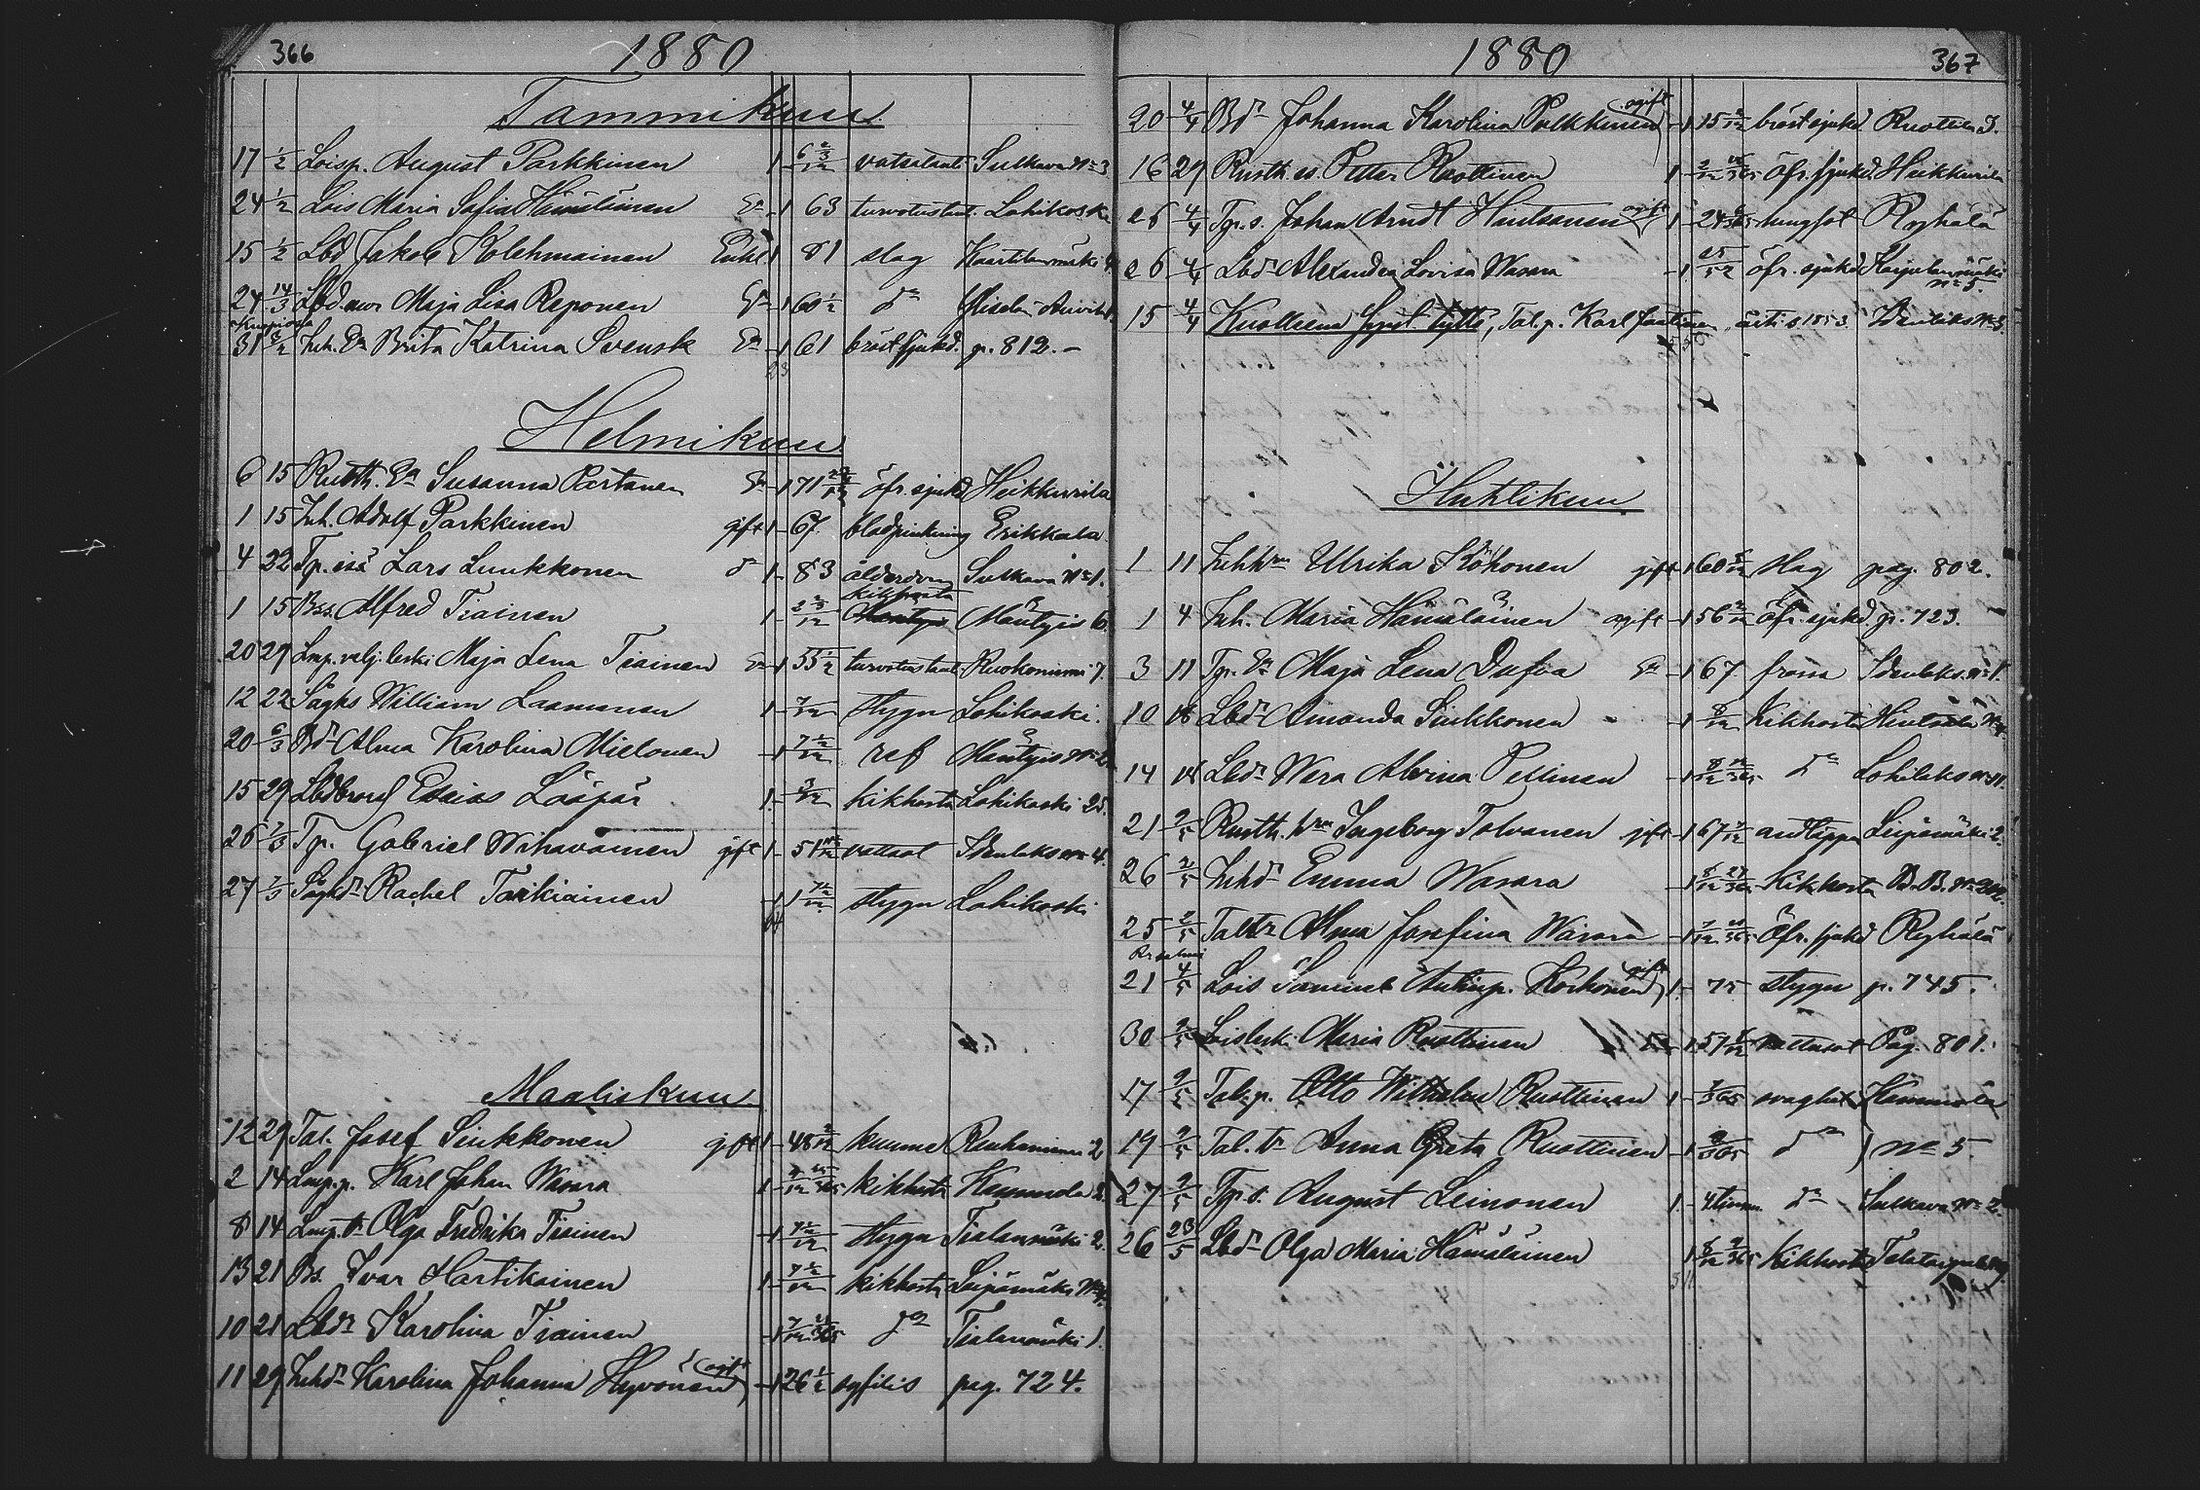 366 1880
Tammikuu
17 1/2 Loisp. August Parkkinen 1 6 2/3/12 vatsataut. Sulkava No 3
24 1/2 Lois Maria Sofia Hämäläinen Ea - 1 63 turvotustaut. Lohikoski
15 1/2 Lbd Jakob Kolehmainen Enkl. 1 81 slag Kaartilanmäki 4.
24 14/3 Lbd. mor Maja Lisa Reponen Ea - 1 60 1/2 do
Kuopiossa
31 2/2 Inh. Ea Brita Katrina Svensk Ea - 1 61 bröstsjukd. p. 812. -
23
Helmikuu
6 15 Rustth. Ea Susanna Partanen Ea - 1 71 öfr. sjukd Heikkurila
1 15 Inh. Adolf Parkkinen gift 1 - 67 Erikkala
4 22 Tp. isä Lars Luukkonen do 1 - 83 ålderdom Sulkava No 1.
kikhosta
1 15 Bss. Alfred Tiainen 1 - 2 2/3/12 Mäntyis 6.
20 29 Lmp. velj. leski Maja Lena Tiainen Ea - 1 55 1/2 turvotustaut. Ruokoniemi 7.
12 22 Sågks William Laamanen 1 - 7/12 stygn Lohikoski.
20 6/3 Bdr Alma Karolina Mielonen - 1 7 1/2/12 ref Mäntyis No
15 29 Lbdbrors Esaias Lääpär 1 - 3/12 kikhosta Lohikoski 25.
26 7/3 Tp. Gabriel Wihavainen gift 1 - 51 vattsot Idenlaks No 4.
27 7/3 Sågkdr Rachel Tarkiainen - 1 1 7 1/2/12 stygn Lohikoski
Maaliskuu
12 29 Tal. Josef Sinkkonen gift 1 - 48 2/12 kuume Rauhaniemi 2
2 14 Lmp. p. Karl Johan Wasara 1 - kikhosta Kammola 2.
8 14 Lmp. tr Olga Fredrika Tiainen - 1 7 1/2/12 stygn Tialanmäki 2.
13 21 Bs. Ivar Hartikainen 1 - 7 1/2/12 kikhosta Leipämäki No 4.
10 21 Lbdr Karolina Tiainen - 1 do Tialanmäki 1.
11 29 Inhdr Karolina Johanna Hyvönen (ogift) - 1 26 1/2 syfilis pag. 724.
1880 367
20 4/4 Bdr Johanna Karolina Pulkkinen (ogift) - 1 15 bröstsjukd. Ruottila 3.
16 29 Rustth. s. Petter Ruottinen 1 öfr. sjukd. Heikkurila
26 4/4 Tp. s. Johan Arndt Hintsanen ogift 1 - 24 lungsot Ryhälä
26 4/4 Lbdr Alexandra Lovisa Wasara - 1 25/52 öfr. sjukd Karjulanmäki
No 5.
15 4/4 Kuolleena Synt. tyttö, Tal. p. Karl Idenlaks No 3
Huhtikuu
1 11 Inhhru Ulrika Köhönen gift - 1 60 slag pag. 802.
1 4 Inh. Maria Hämäläinen ogift - 1 56 öfr. sjukd. p. 723.
3 11 Tp. Ea Maja Lena Dufva Ea - 1 67 frossa Idenlaks. No 1.
10 18 Lbdr Amanda Sinkkonen - 1 8/12 Kikhosta
14 18 Lbdr Wera Alvina Pellinen - 1 do Lohilaks No 11.
21 2/5 Rustth. hru Ingeborg Tolvanen gift - 1 67 7/12 andtäppa Leipämäki 2.
26 2/5 Inhdr Emma Wasara - 1 Kikhosta
25 2/5 Taltr Alma Josefina Wasara - 1 Öfr. sjukd Ryhälä
Rrsalmi
21 4/5 Lois Samuel Antinp. Korhonen (gift) 1 - 75 stygn p. 745.
30 2/5 Loislesk. Maria Ruottinen Ea - 1 51 vattusot Pag. 801.
17 9/5 Tal. p. Otto Wilhelm Ruottinen 1 - 7/365 svaghet Kammola
19 9/5 Tal. tr Anna Greta Ruottinen - 1 9/365 do ) No 5.
27 9/5 Tp. s. August Leinonen 1 - 4 timm. do Sulkava No 2.
26 23/5 Lbdr Olga Maria Hämäläinen 1 Kikhosta